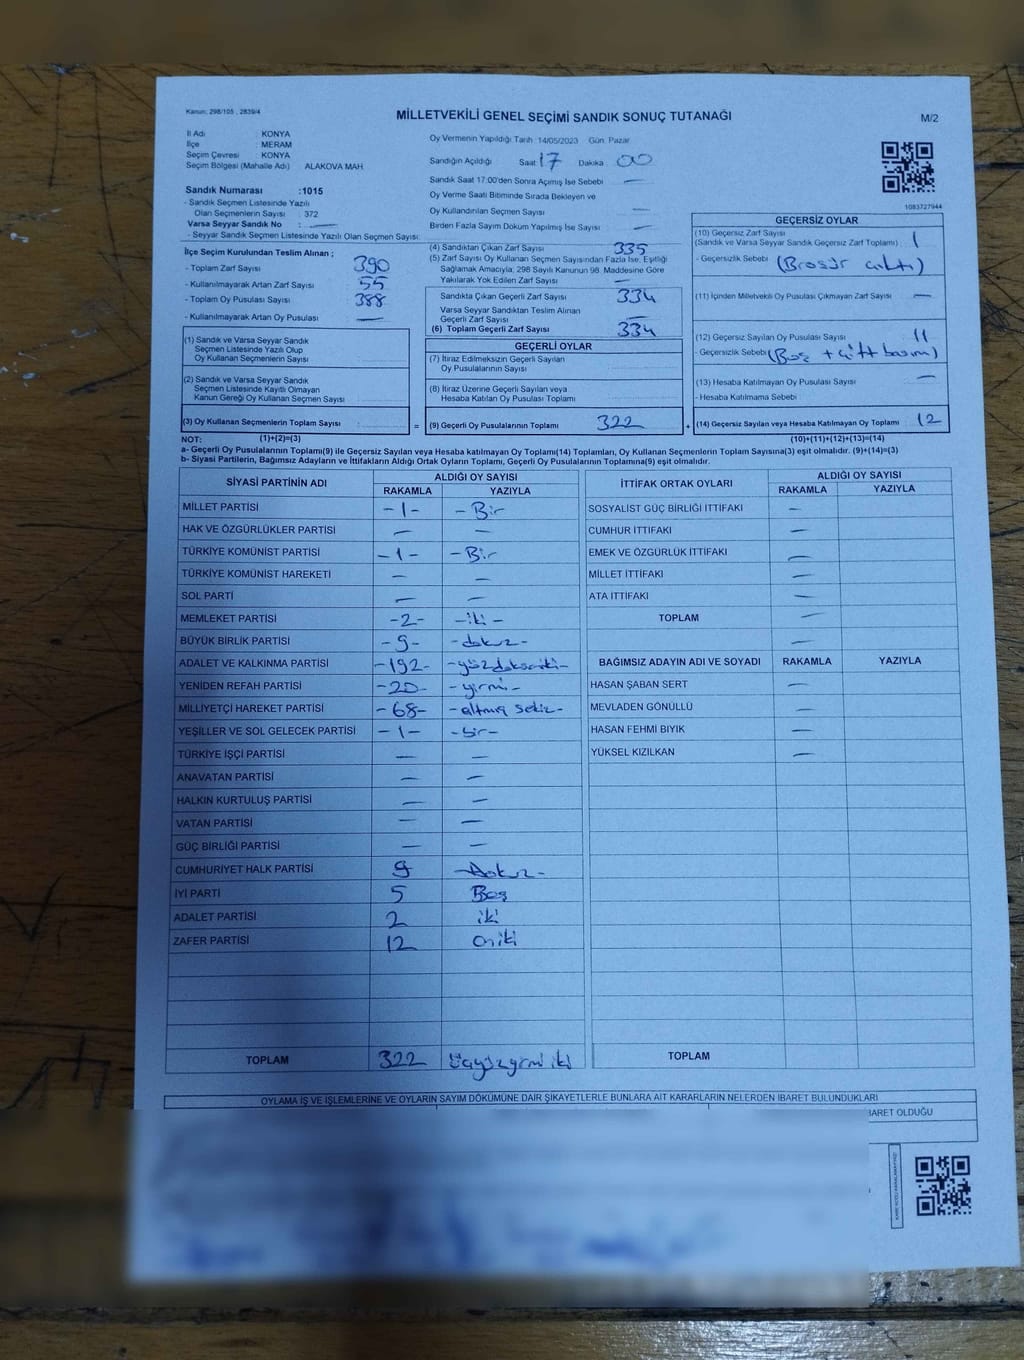 Kanun: 298/105 , 2839/4
MİLLETVEKİLİ GENEL SEÇİMİ SANDIK SONUÇ TUTANAĞI
M/2
İl Adı : KONYA
İlçe : MERAM
Seçim Çevresi : KONYA
Seçim Bölgesi (Mahalle Adı) ALAKOVA MAH.
Sandık Numarası :1015
- Sandık Seçmen Listesinde Yazılı
Olan Seçmenlerin Sayısı : 372
Varsa Seyyar Sandık No : —
- Seyyar Sandık Seçmen Listesinde Yazılı Olan Seçmen Sayısı:
Oy Vermenin Yapıldığı Tarih :14/05/2023 Gün: Pazar
Sandığın Açıldığı Saat 17 Dakika 00
Sandık Saat 17:00'den Sonra Açılmış İse Sebebi —
Oy Verme Saati Bitiminde Sırada Bekleyen ve
Oy Kullandırılan Seçmen Sayısı —
Birden Fazla Sayım Döküm Yapılmış İse Sayısı —
1083727944
İlçe Seçim Kurulundan Teslim Alınan ;
- Toplam Zarf Sayısı 390
- Kullanılmayarak Artan Zarf Sayısı 55
- Toplam Oy Pusulası Sayısı 388
- Kullanılmayarak Artan Oy Pusulası —
(1) Sandık ve Varsa Seyyar Sandık
Seçmen Listesinde Yazılı Olup
Oy Kullanan Seçmenlerin Sayısı
(2) Sandık ve Varsa Seyyar Sandık
Seçmen Listesinde Kayıtlı Olmayan
Kanun Gereği Oy Kullanan Seçmen Sayısı
(3) Oy Kullanan Seçmenlerin Toplam Sayısı =
(4) Sandıktan Çıkan Zarf Sayısı 335
(5) Zarf Sayısı Oy Kullanan Seçmen Sayısından Fazla İse, Eşitliği
Sağlamak Amacıyla; 298 Sayılı Kanunun 98. Maddesine Göre
Yakılarak Yok Edilen Zarf Sayısı —
Sandıkta Çıkan Geçerli Zarf Sayısı 334
Varsa Seyyar Sandıktan Teslim Alınan
Geçerli Zarf Sayısı
(6) Toplam Geçerli Zarf Sayısı 334
GEÇERLİ OYLAR
(7) İtiraz Edilmeksizin Geçerli Sayılan
Oy Pusulalarının Sayısı
(8) İtiraz Üzerine Geçerli Sayılan veya
Hesaba Katılan Oy Pusulası Toplamı
(9) Geçerli Oy Pusulalarının Toplamı 322 +
GEÇERSİZ OYLAR
(10) Geçersiz Zarf Sayısı
(Sandık ve Varsa Seyyar Sandık Geçersiz Zarf Toplamı) : 1
- Geçersizlik Sebebi (Broşür çıktı)
(11) İçinden Milletvekili Oy Pusulası Çıkmayan Zarf Sayısı —
(12) Geçersiz Sayılan Oy Pusulası Sayısı 11
- Geçersizlik Sebebi (Boş + çift basım)
(13) Hesaba Katılmayan Oy Pusulası Sayısı —
- Hesaba Katılmama Sebebi
(14) Geçersiz Sayılan veya Hesaba Katılmayan Oy Toplamı 12
NOT: (1)+(2)=(3) (10)+(11)+(12)+(13)=(14)
a- Geçerli Oy Pusulalarının Toplamı(9) ile Geçersiz Sayılan veya Hesaba katılmayan Oy Toplamı(14) Toplamları, Oy Kullanan Seçmenlerin Toplam Sayısına(3) eşit olmalıdır. (9)+(14)=(3)
b- Siyasi Partilerin, Bağımsız Adayların ve İttifakların Aldığı Ortak Oyların Toplamı, Geçerli Oy Pusulalarının Toplamına(9) eşit olmalıdır.
SİYASİ PARTİNİN ADI ALDIĞI OY SAYISI
RAKAMLA YAZIYLA
MİLLET PARTİSİ -1- -Bir
HAK VE ÖZGÜRLÜKLER PARTİSİ — —
TÜRKİYE KOMÜNİST PARTİSİ -1- -Bir
TÜRKİYE KOMÜNİST HAREKETİ — —
SOL PARTİ — —
MEMLEKET PARTİSİ -2- -iki-
BÜYÜK BİRLİK PARTİSİ -9- -dokuz-
ADALET VE KALKINMA PARTİSİ -192- -yüzdoksaniki-
YENİDEN REFAH PARTİSİ -20- -yirmi-
MİLLİYETÇİ HAREKET PARTİSİ -68- -altmış sekiz-
YEŞİLLER VE SOL GELECEK PARTİSİ -1- -bir-
TÜRKİYE İŞÇİ PARTİSİ — —
ANAVATAN PARTİSİ — —
HALKIN KURTULUŞ PARTİSİ — —
VATAN PARTİSİ — —
GÜÇ BİRLİĞİ PARTİSİ — —
CUMHURİYET HALK PARTİSİ 9 -Dokuz-
İYİ PARTİ 5 Beş
ADALET PARTİSİ 2 iki
ZAFER PARTİSİ 12 oniki
TOPLAM 322 Üçyüzyirmi iki
İTTİFAK ORTAK OYLARI ALDIĞI OY SAYISI
RAKAMLA YAZIYLA
SOSYALİST GÜÇ BİRLİĞİ İTTİFAKI —
CUMHUR İTTİFAKI —
EMEK VE ÖZGÜRLÜK İTTİFAKI —
MİLLET İTTİFAKI —
ATA İTTİFAKI —
TOPLAM —
—
BAĞIMSIZ ADAYIN ADI VE SOYADI RAKAMLA YAZIYLA
HASAN ŞABAN SERT —
MEVLADEN GÖNÜLLÜ —
HASAN FEHMİ BIYIK —
YÜKSEL KIZILKAN —
TOPLAM
OYLAMA İŞ VE İŞLEMLERİNE VE OYLARIN SAYIM DÖKÜMÜNE DAİR ŞİKAYETLERLE BUNLARA AİT KARARLARIN NELERDEN İBARET BULUNDUKLARI
BARET OLDUĞU